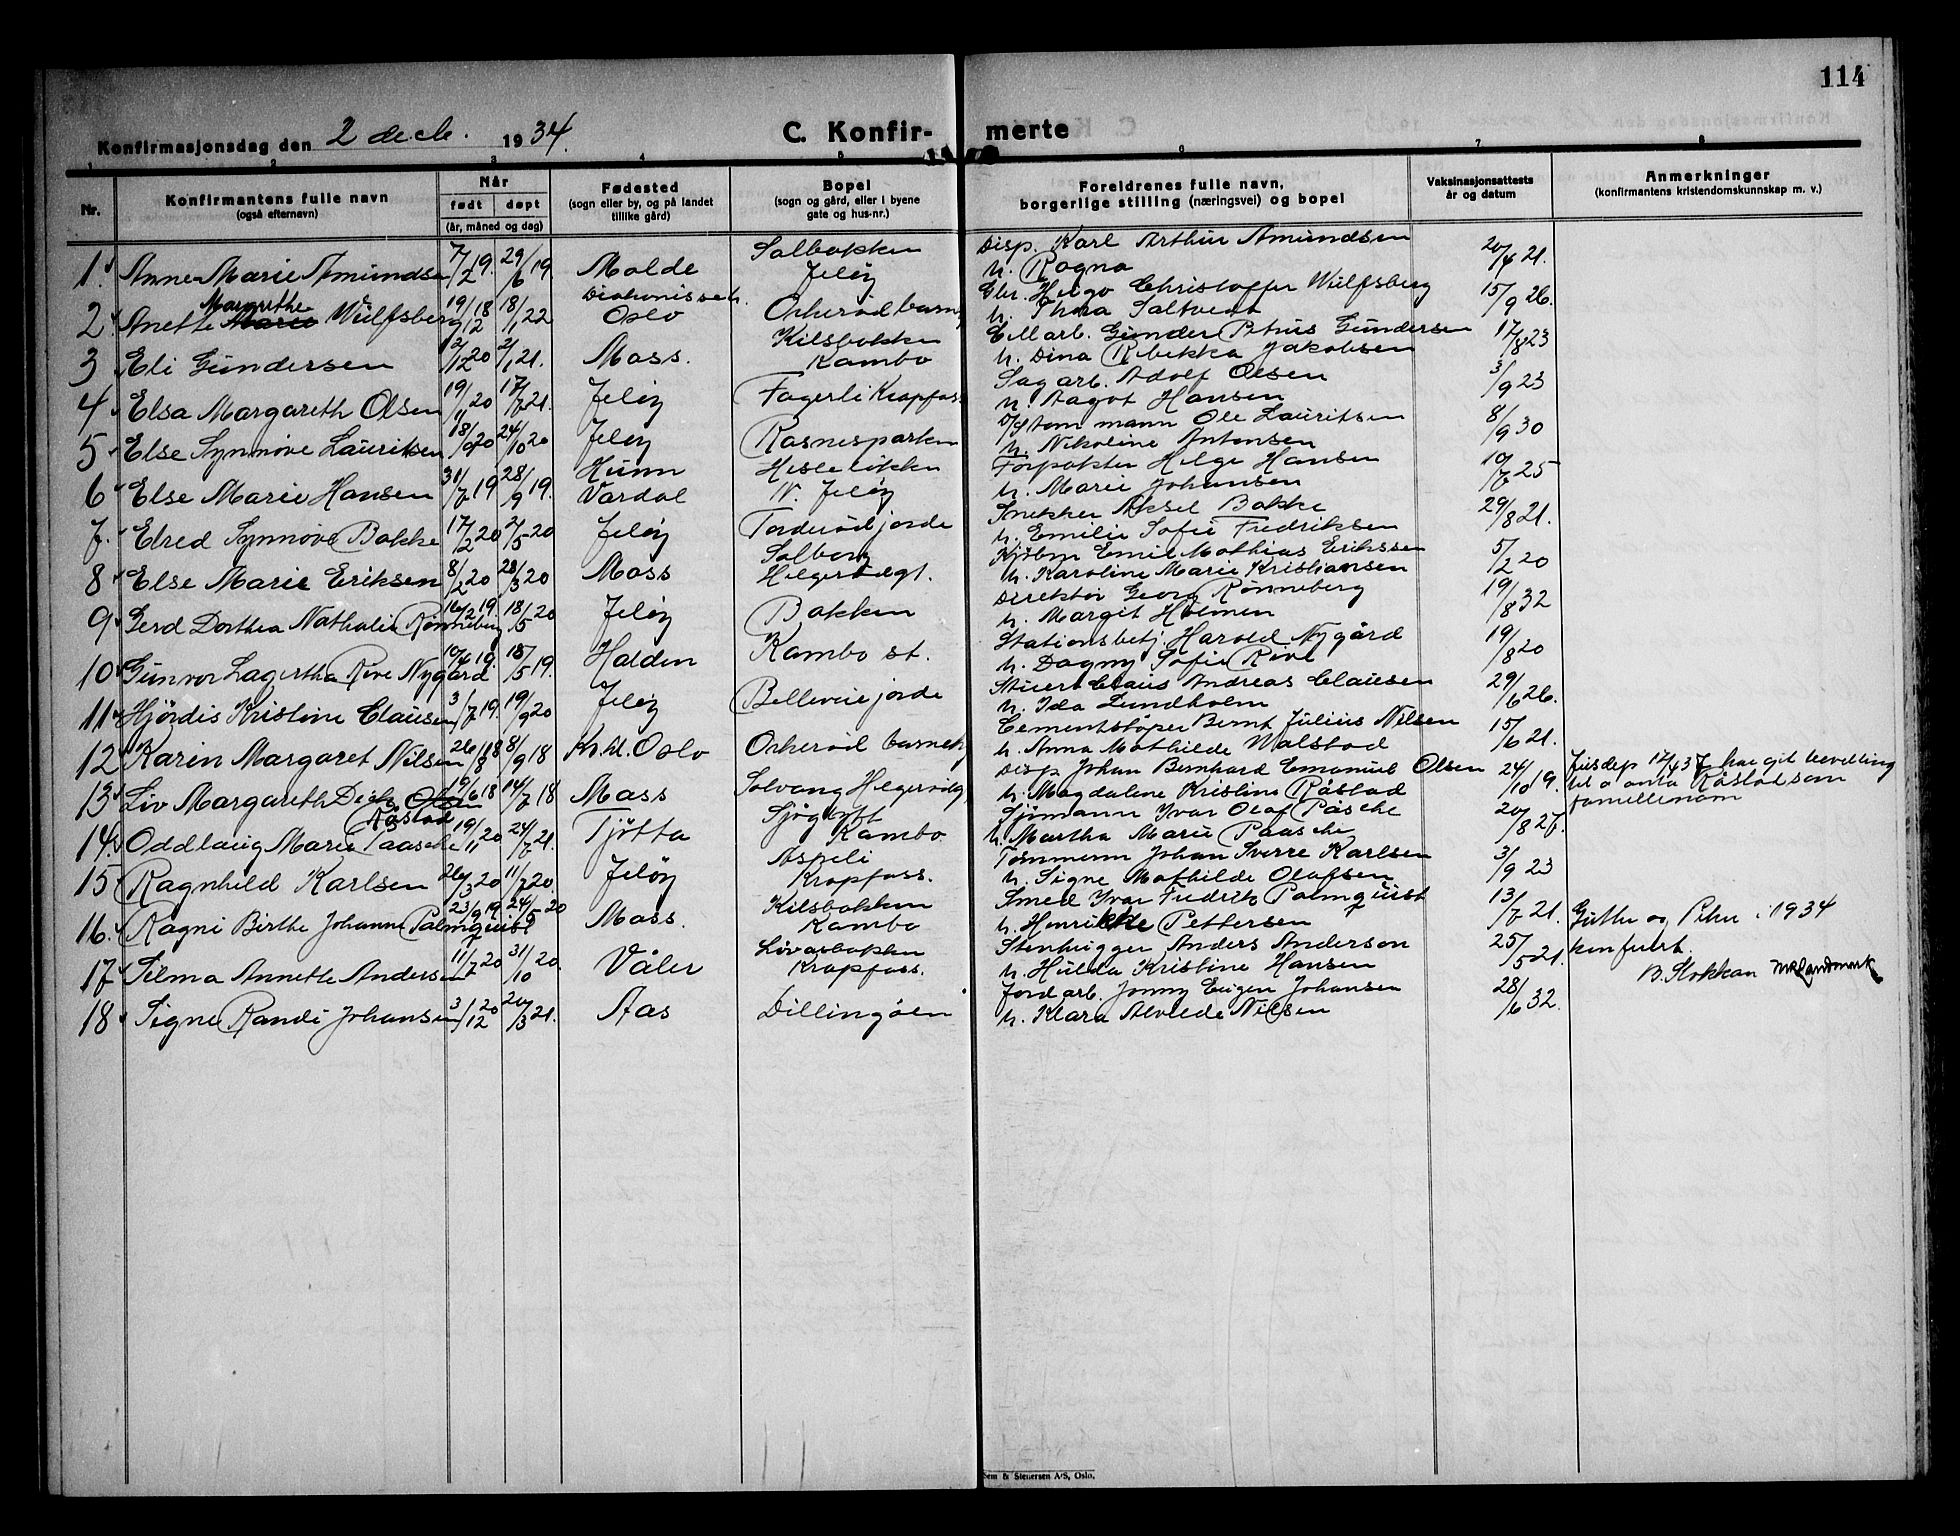 114
Konfirmasjonsdag den 2 decb. 1934.
C. Konfir- merte
1 2 3 4 5 6 7 8
Nr.
Konfirmantens fulle navn
(også efternavn)
Når
født døpt
(år, måned og dag)
Fødested
(sogn eller by, og på landet
tillike gård)
Bopel
(sogn og gård, eller i byene
gate og hus-nr.)
Foreldrenes fulle navn,
borgerlige stilling (næringsvei) og bopel
Vaksinasjonsattests
år og datum
Anmerkninger
(konfirmantens kristendomskunnskap m. v.)
1. Anne-Marie Amundsen 7/2 19. 29/6 19. Molde Solbakken Jeløy Disp. Karl Arthur Amundsen u. Ragna 20/4 21.
2 Anette Marie Margrethe Wulfsberg 19/12 18 18/1 22 Diakonisseh. Oslo Orkerød barnehj Gbr. Helge Christoffer Wulfsberg u. Thea Saltvedt 15/9 26.
3 Eli Gundersen 2/12 20 2/1 21. Moss. Kilsbakken Kambo Cell arb. Gunder Petrus Gundersen u. Dina Rebekka Jakobsen 17/8 23
4 Elsa Margareth Olsen 19/11 20 17/7 21. Jeløy Fagerli Krapfoss Sagarb. Adolf Olsen u. Aagot Hansen 3/9 23
5 Else Synnøve Lauritsen 18/9 20 24/10 20 Jeløy Rasnesparken Ole Lauritsen u. Nikoline Antonsen 8/9 30
6 Else Marie Hansen 31/7 19 28/9 19. Hunn Vardal Hesleløkken N. Jeløy Forpakter Helge Hansen u. Marie Johansen 19/7 25
7. Elred Synnøve Bakke 17/2 20 2/5 20 Jeløy Torderød jorde Snekker Aksel Bakke u. Emilie Sofie Fredriksen 29/8 21.
8 Else Marie Eriksen 8/2 20 28/3 20 Moss Solberg Helgerødgt. Kjøbm Emil Mathias Erikssen u. Karoline Marie Kristiansen 5/2 20
9 Gerd Dorthea Nathalie Rønneberg 16/12 19. 18/5 20 Jeløy Bakken Direktør Georg Rønneberg u. Margit Holmen 19/8 32
10 Gunvor Lagertha Rive Nygård 10/4 19. 18/5 19. Halden Kambo st. Stationsbetj. Harald Nygård u. Dagny Sofie Rive 19/8 20
11 Hjördis Kristine Clausen 3/7 19. 19/9 20 Jeløy Belleveie jorde Stuert Claus Andreas Clausen u. Ida Lundholm 29/6 26.
12 Karin Margaret Nilsen 26/8 18 8/9 18 Kr.hl. Oslo Orkerød barnehj Cementstøper Bernt Julius Nilsen u. Anna Mathilde Malstad 15/6 21.
13 Liv Margareth Dich Olsen Råstad 19/6 18 14/7 18 Moss Solvang Helgerødg Disp Johan Bernhard Emanuel Olsen u. Magdalene Kristine Råstad 24/10 19. Jusdep 12/6 37 har git bevilling til å anta Råstad som familienavn
14. Oddlaug Marie Paasche 19/11 20 24/7 21. Tjøtta Sjøgløtt Kambo Sjømann Ivar Olaf Påsche u. Martha Marie Paasche 20/8 27.
15 Ragnhild Karlsen 26/3 20 11/7 20. Jeløy Aspeli Krapfoss. Tømmerm Johan Sverre Karlsen u. Signe Mathilde Olafsen 3/9 23
16. Ragni Birthe Johanne Palmquist 23/9 19 24/5 20 Moss. Kilsbakken Kambo Smed Ivar Fredrik Palmquist u. Henrikke Pettersen 13/7 21. Guttu og Piker i 1934
17 Selma Annethe Andersen 11/7 20 31/10 20. Våler Livarbakken Krapfoss. Stenhugger Anders Anderson u. Hulda Kristine Hansen 25/5 21. konfurert.
B. Stokkan
18 Signe Randi Johansen 3/12 20 20/3 21. Aas Dillingøen Jordarb. Jonny Eugen Johansen u. Klara Alvilde Nilsen 28/6 32.
Sem & Stenersen A/S, Oslo.